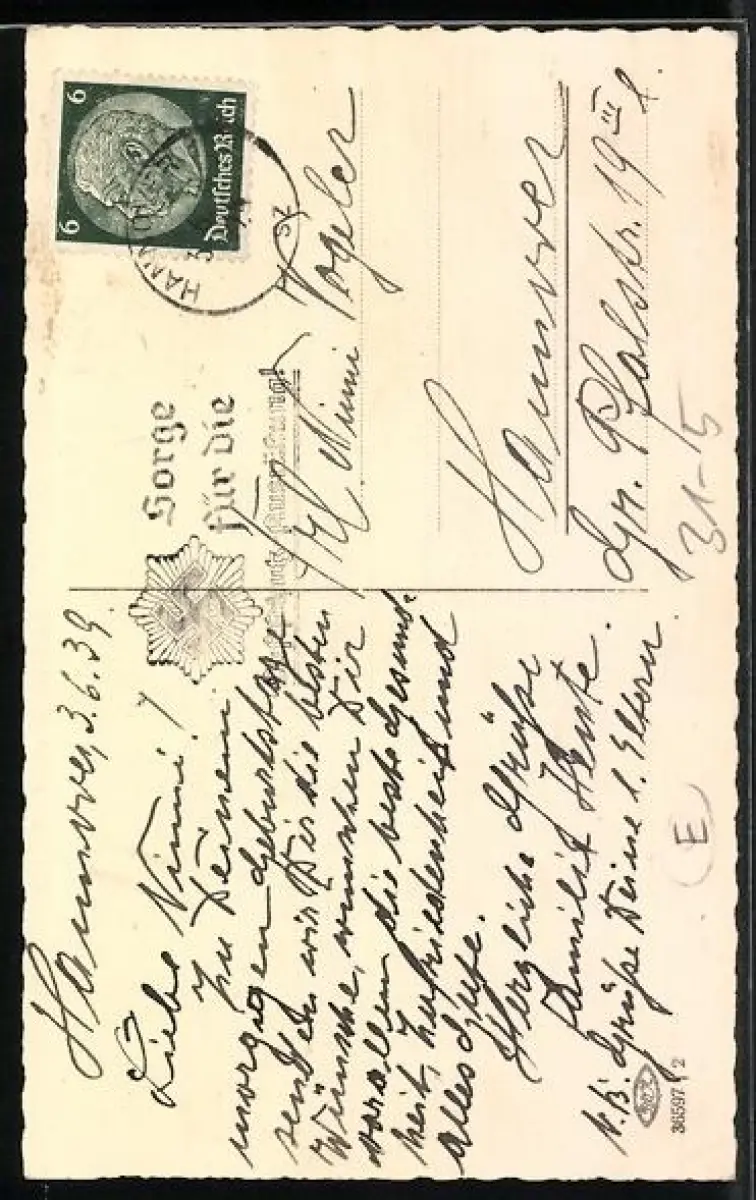 Hannover, 3.6.39.
Liebe Nimmi!
Zu Deinem
morgigen Geburtstage
senden wir Dir die besten
Wünsche, wünschen Dir
vor allem die beste Gesund-
heit, Zufriedenheit und
alles Gute.
Herzliche Grüße
Familie Hente.
N.B. Grüße Deine l. Eltern.
36597 2
(E)
6
6
Deutsches Reich
HANNOVER
3
Sorge
für die
Ausrüstung!
Frl. Nimmi Vogeler
Hannover
Gr. Pfalstr. 19 III l.
31-5